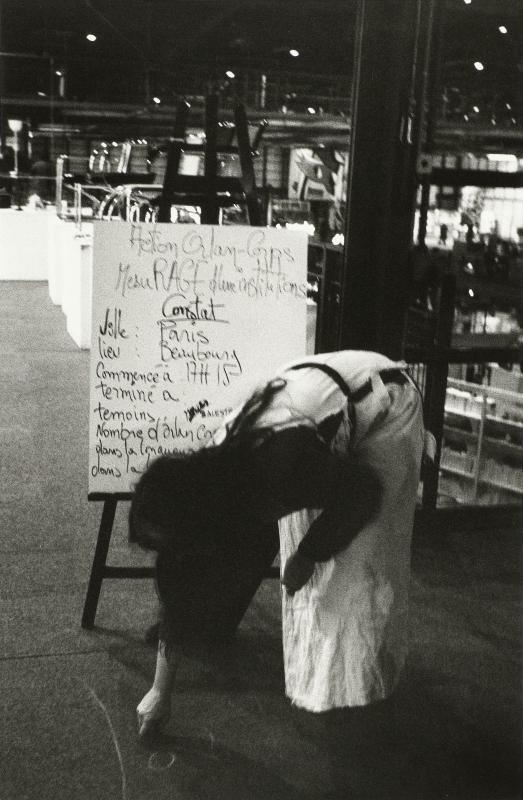 Action Orlan-Corps
MesuRAGE d'une institution
Constat
Ville : Paris
lieu : Beaubourg
Commencé à 17H 15
terminé a :
temoins
Nombre d'Orlan Co
dans la longueu
dans la